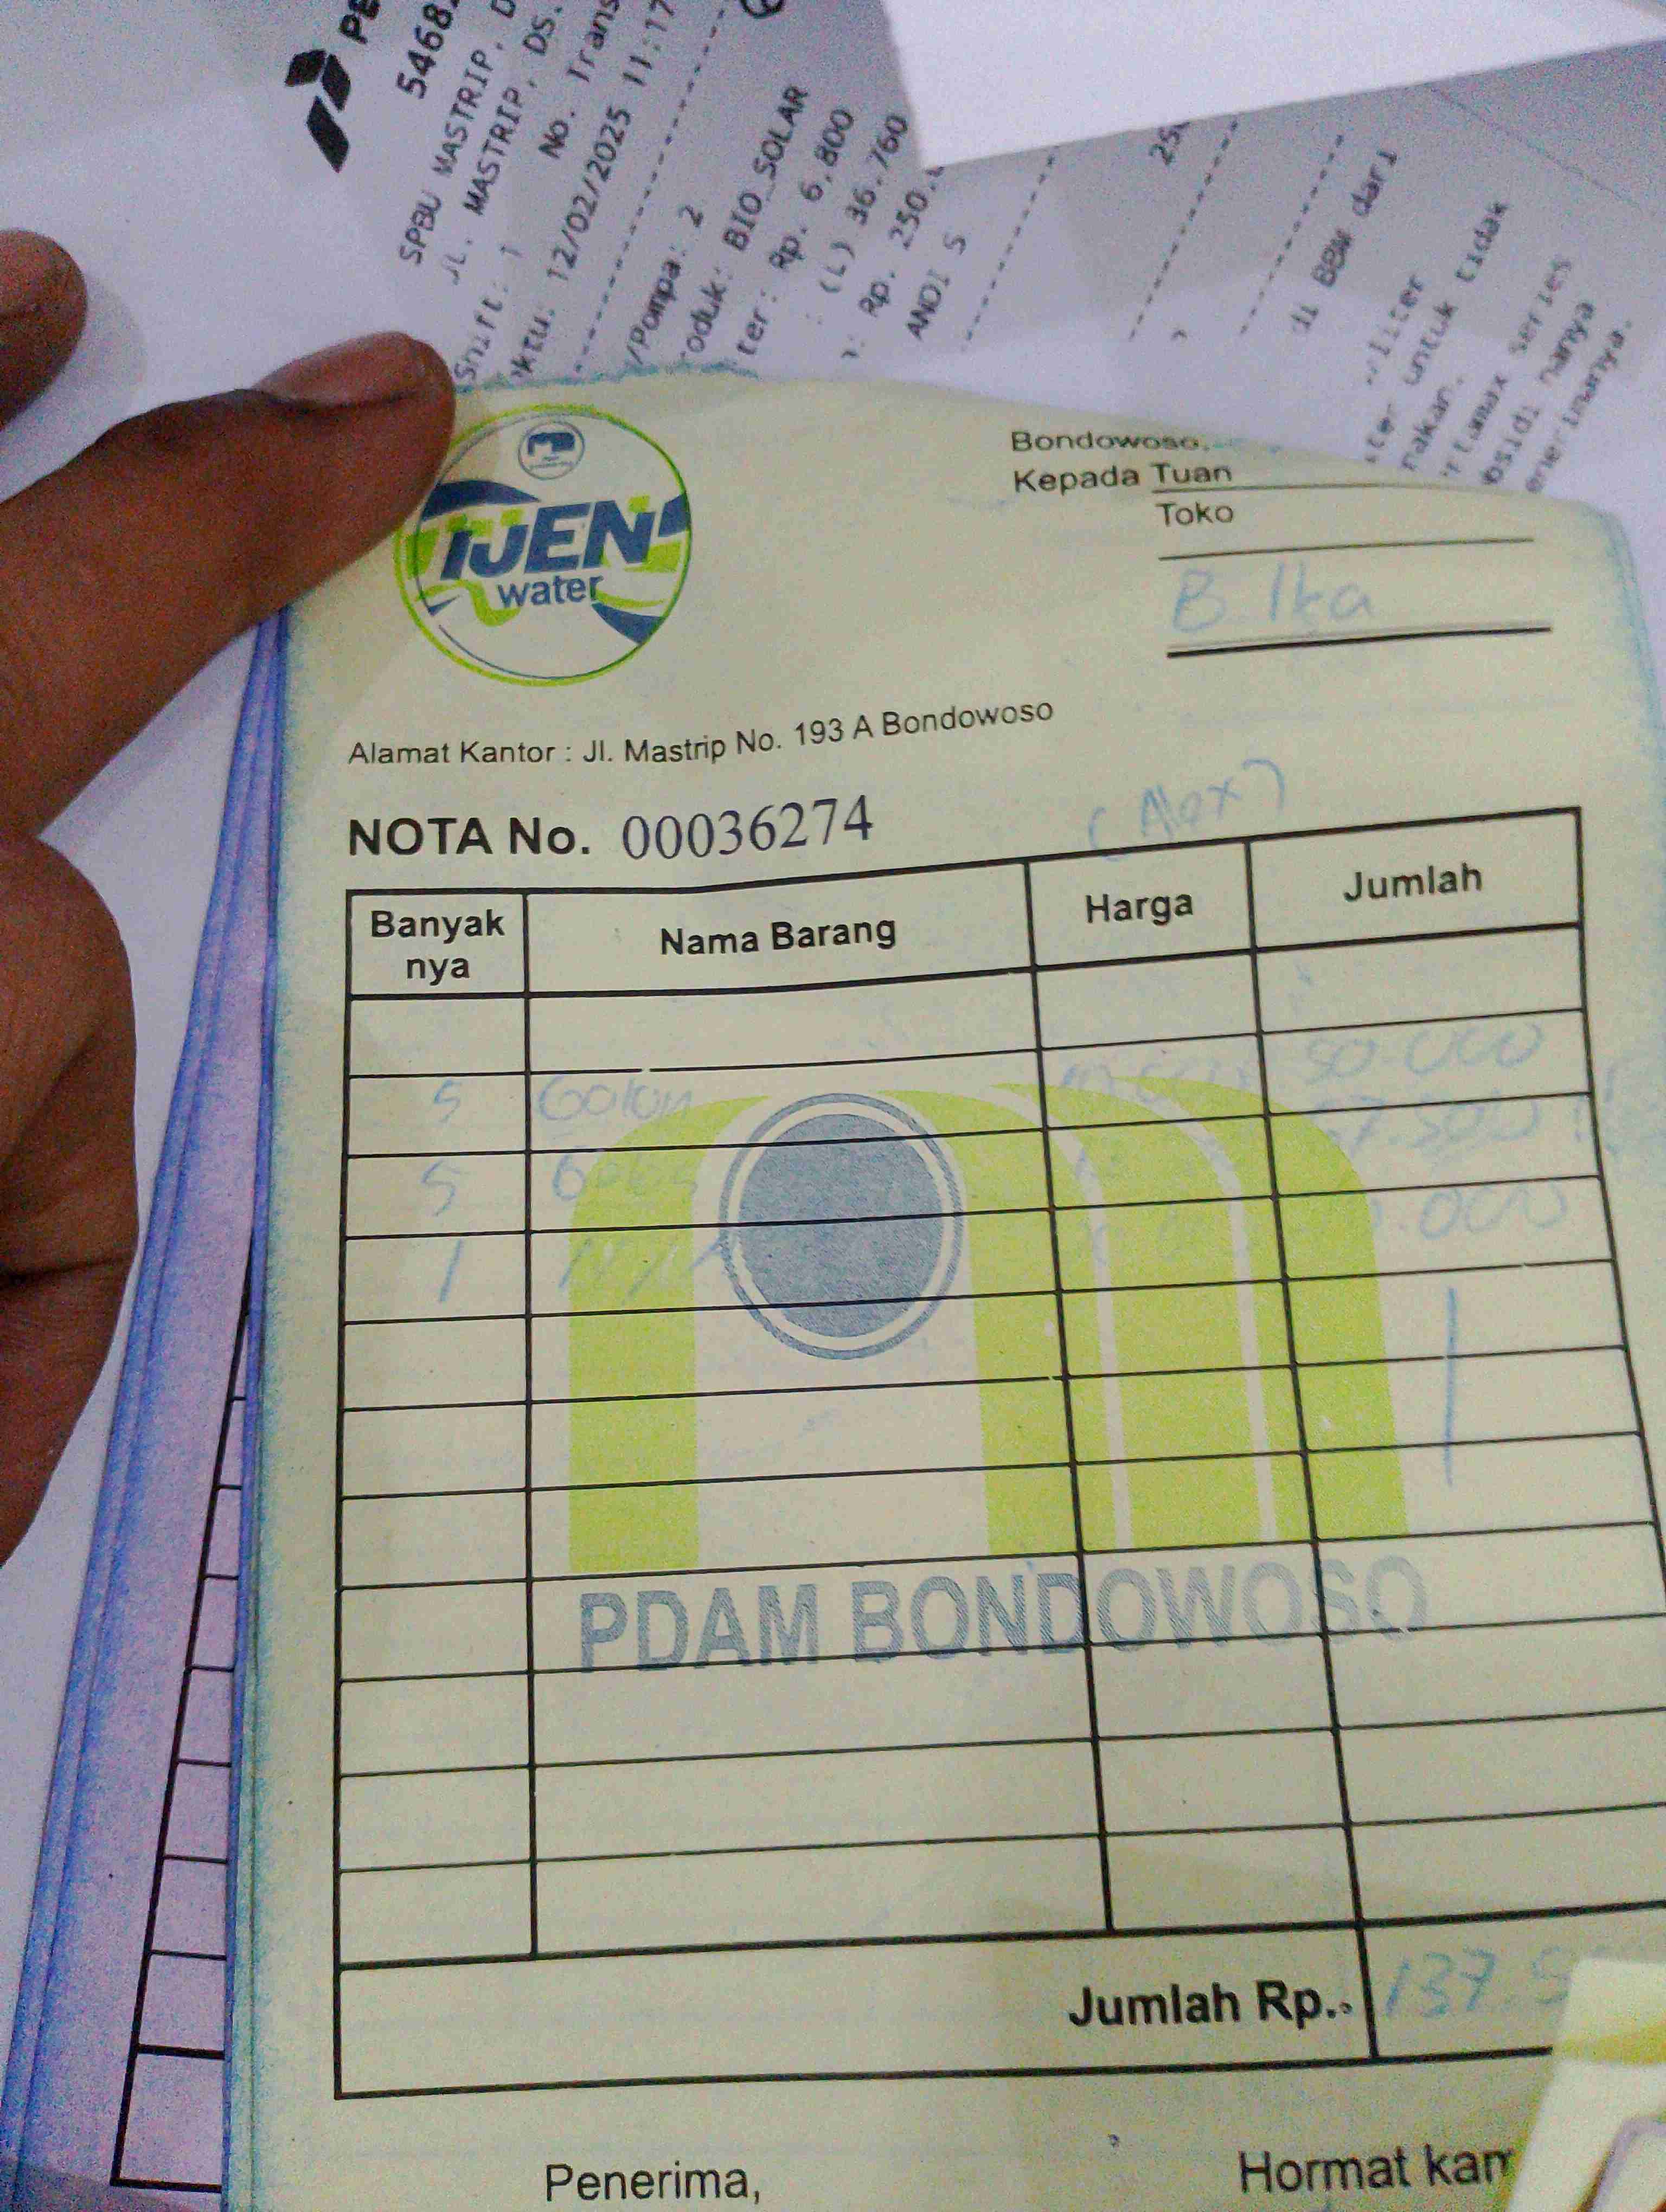 5468
SPBU MASTRIP, D
JL. MASTRIP, DS.
Shift: 1 No. Trans
ktu: 12/02/2025 11:17
/Pompa: 2
roduk: BIO_SOLAR
ter: Rp. 6,800
: (L) 36.760
: Rp. 250.
ANDI S
di BBM dari
liter
untuk tidak
nakan.
rtamax series
bsidi hanya
enerimanya.
IJEN
water
Bondowoso,
Kepada Tuan
Toko
B Ika
Alamat Kantor : Jl. Mastrip No. 193 A Bondowoso
NOTA No. 00036274
(Alex)
Banyak nya Nama Barang Harga Jumlah
5 Galon 50.000
5 7.500
1 .000
PDAM BONDOWOSO
Jumlah Rp.. 137.5
Penerima, Hormat kam